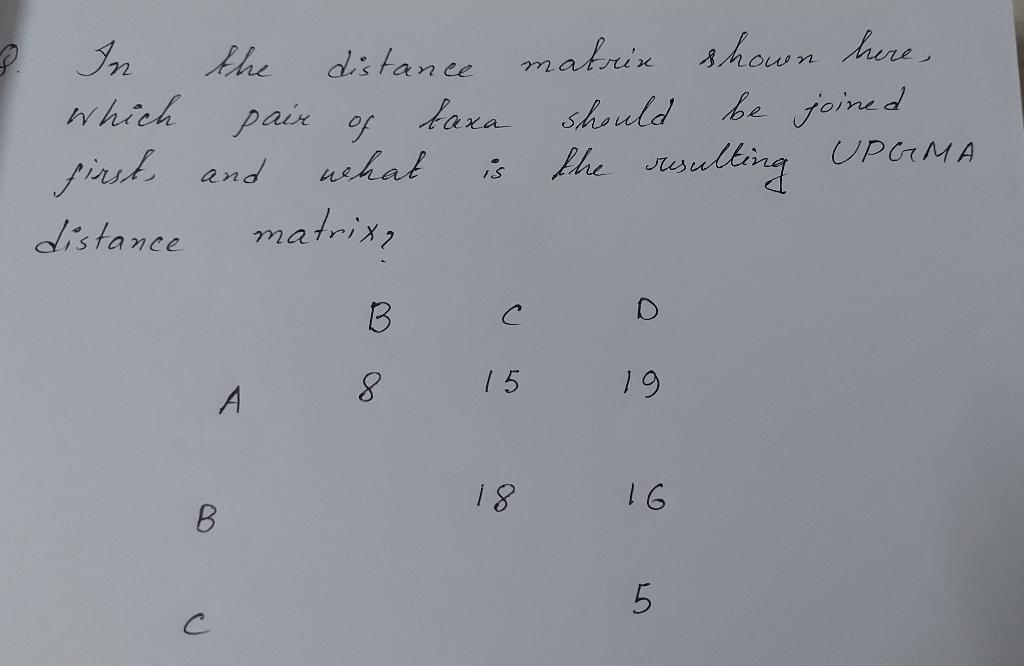 8. In the distance matrix shown here,
which pair of taxa should be joined
first, and what is the resulting UPGMA
distance matrix?
B C D
A 8 15 19
B 18 16
C 5